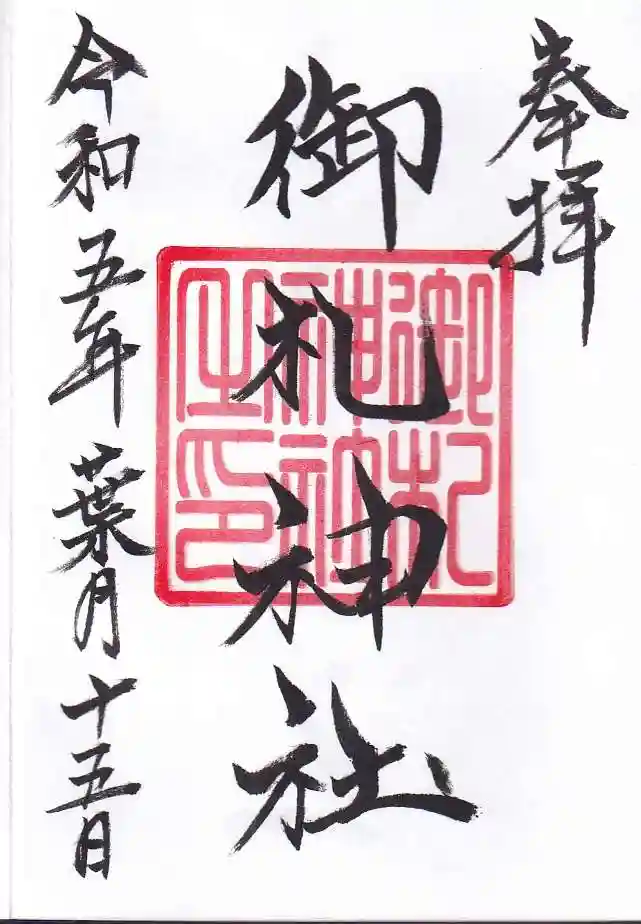 奉拝
御札神社
御札神社之印
令和五年葉月十五日